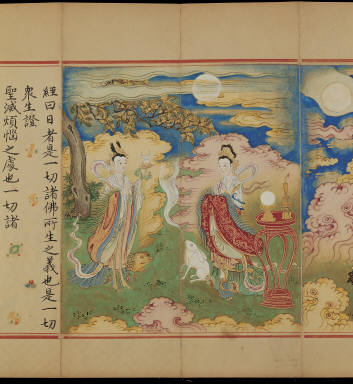 經曰日者是一切諸佛所生之義也是一切
衆生證
聖滅煩惱之處也一切諸